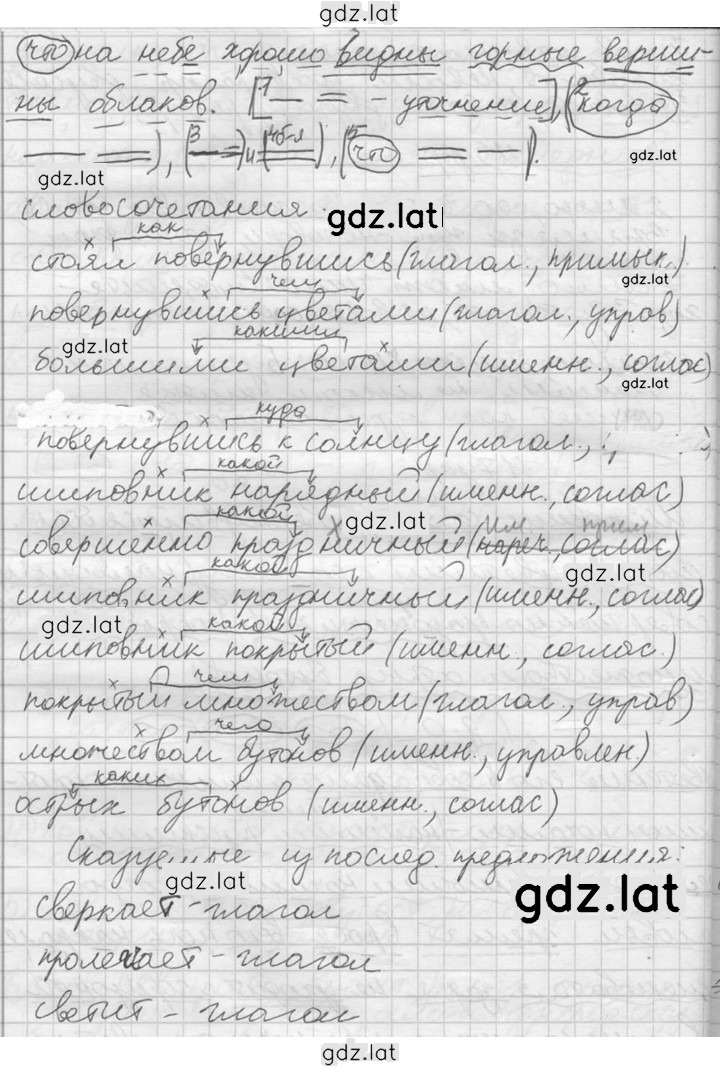 gdz.lat
что на небе хорошо видны горные верши-
ны облаков. [1 — = - уточнение], (2 когда
— =), (3 — =) и (4 б-л =), (5 что = —).
gdz.lat
gdz.lat
словосочетания
gdz.lat
как
стоял повернувшись (глагол., примык.)
gdz.lat
чем
повернувшись цветами (глагол., управ)
gdz.lat
какими
большими цветами (именн., соглас)
gdz.lat
куда
повернувшись к солнцу (глагол.,
какой
шиповник нарядный (именн., соглас)
gdz.lat
какой
им прим
совершенно праздничный (нареч., соглас)
gdz.lat
какой
шиповник праздничный (именн., соглас)
gdz.lat
какой
шиповник покрытый (именн., соглас.)
чем
покрытый множеством (глагол., управ)
чего
множеством бутонов (именн., управлен.)
каких
острых бутонов (именн., соглас)
Сказуемые из послед. предложения:
gdz.lat
сверкает - глагол
gdz.lat
пролетает - глагол
светит - глагол
gdz.lat